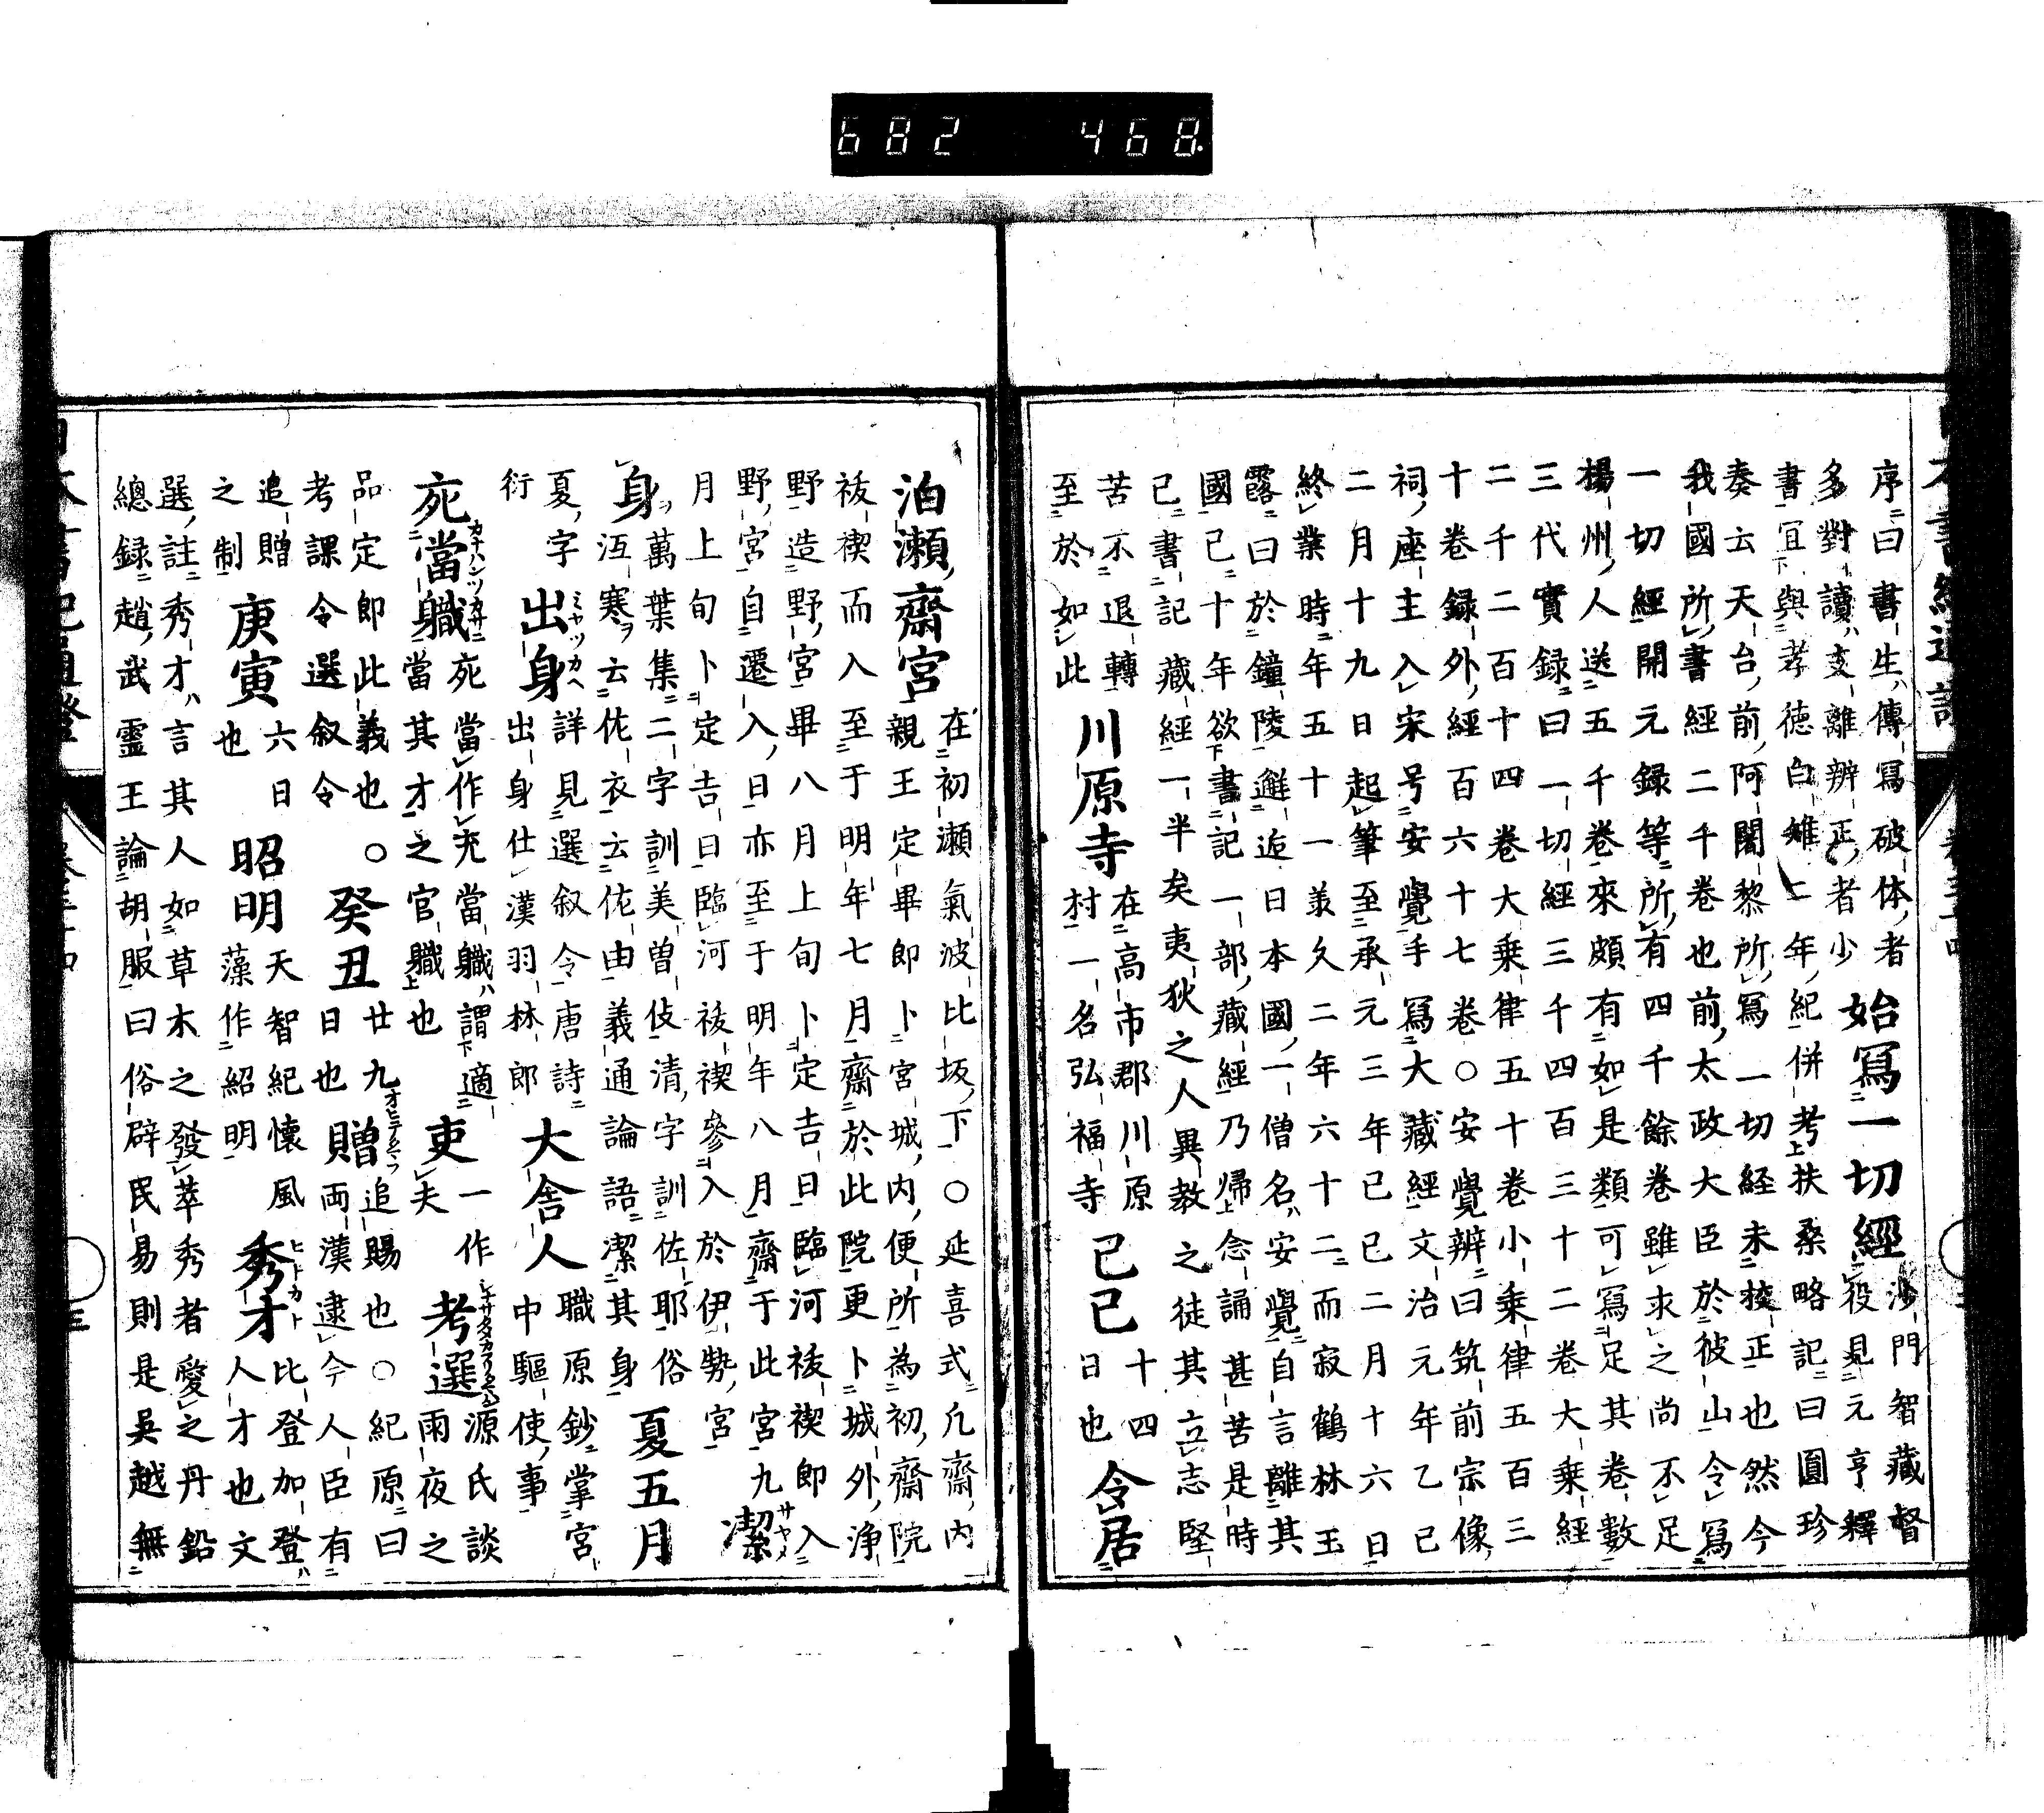 682 468
序曰書生傳寫破体者
多對讀支離辨正者少 始寫一切經 沙門智藏督
役見元亨釋
書宜與孝徳白雉二年紀併考扶桑略記曰圓珍
奏云天台前阿闍黎所寫一切経未挍正也然今
我國所書經二千卷也前太政大臣於彼山令寫
一切經開元録等所有四千餘卷雖求之尚不足
楊州人送五千卷來頗有如是類可寫足其卷數
三代實録曰一切經三千四百三十二卷大乘經
二千二百十四卷大乘律五十卷小乘律五百三
十卷録外經百六十七卷○安覺辨曰筑前宗像
祠座主入宋号安覺手寫大藏經文治元年乙巳
二月十九日起筆至承元三年己巳二月十六日
終業時年五十一羕久二年六十二而寂鶴林玉
露曰於鐘陵邂逅日本國一僧名安覺自言離其
國已十年欲書記一部藏經乃帰念誦甚苦是時
已書記藏經一半矣夷狄之人異教之徒其立志堅
苦不退轉
至於如此 川原寺 在高市郡川原
村一名弘福寺 己巳 十四
日也 令居
泊瀬齋宮 在初瀬氣波比坂下○延喜式凡齋内
親王定畢即卜宮城内便所為初齋院
祓禊而入至于明年七月齋於此院更卜城外浄
野造野宮畢八月上旬卜定吉日臨河祓禊即入
野宮自遷入日亦至于明年八月齋于此宮九
月上旬卜定吉日臨河祓禊參入於伊勢宮 潔サヤメ
身ヲ 萬葉集二字訓美曽伎清字訓佐耶俗
冱寒ヲ云佐衣云佐由義通論語潔其身 夏五月
夏字
衍 出身ミヤツカヘ 詳見選叙令唐詩
出身仕漢羽林郎 大舍人 職原鈔掌宮
中驅使事
死當職 死當作充當職謂適
當其才之官職也 吏 一作
夫 考選 源氏談
雨夜之
品定即此義也○
考課令選叙令 癸丑 廿九
日也 贈 追賜也○紀原曰
両漢逮今人臣有
追贈
之制 庚寅 六日
也 昭明 天智紀懐風
藻作紹明 秀才ヒトカト 比登加登
人才也文
選註秀才言其人如草木之發萃秀者愛之丹鉛
總録趙武靈王論胡服曰俗辟民易則是吳越無